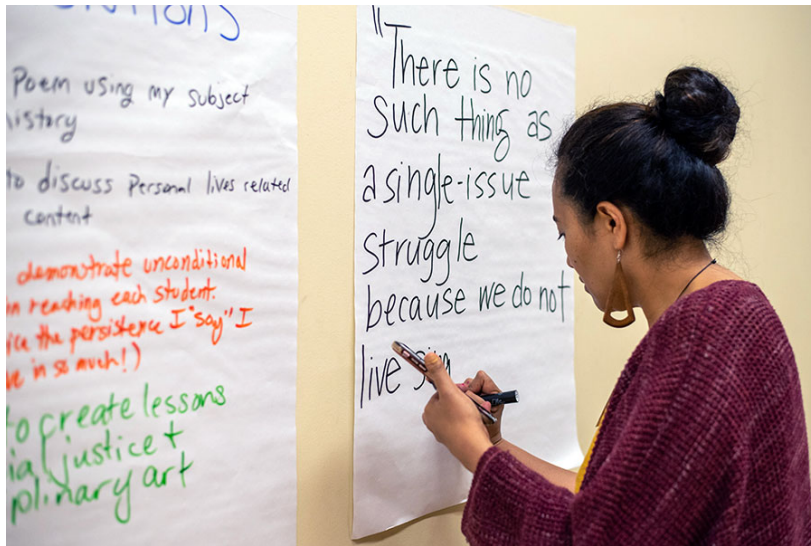 Poem using my subject
history
to discuss Personal lives related
content
demonstrate unconditional
in reaching each student.
the persistence I "say" I
in so much!)
to create lessons
justice +
art
"There is no
such thing as
a single-issue
struggle
because we do not
live